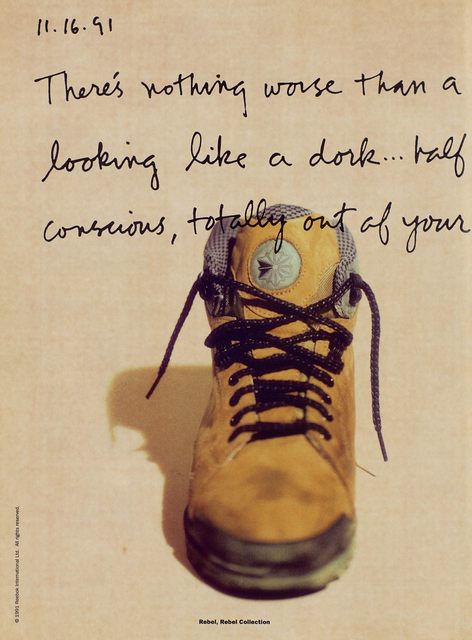 11.16.91
There's nothing worse than a
looking like a dork... half
conscious, totally out of your
Rebel, Rebel Collection
© 1991 Reebok International Ltd. All rights reserved.